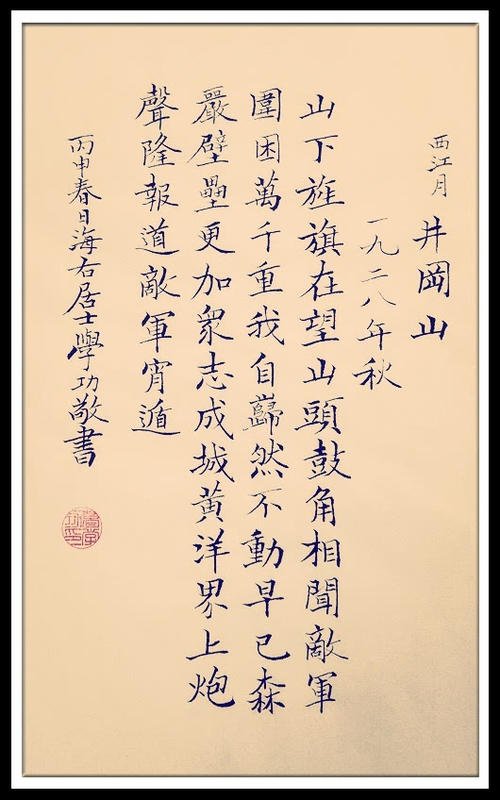 西江月 井岡山
一九二八年秋
山下旌旗在望山頭鼓角相聞敵軍
圍困萬千重我自巋然不動早已森
嚴壁壘更加衆志成城黄洋界上炮
聲隆報道敵軍宵遁
丙申春日海右居士學功敬書